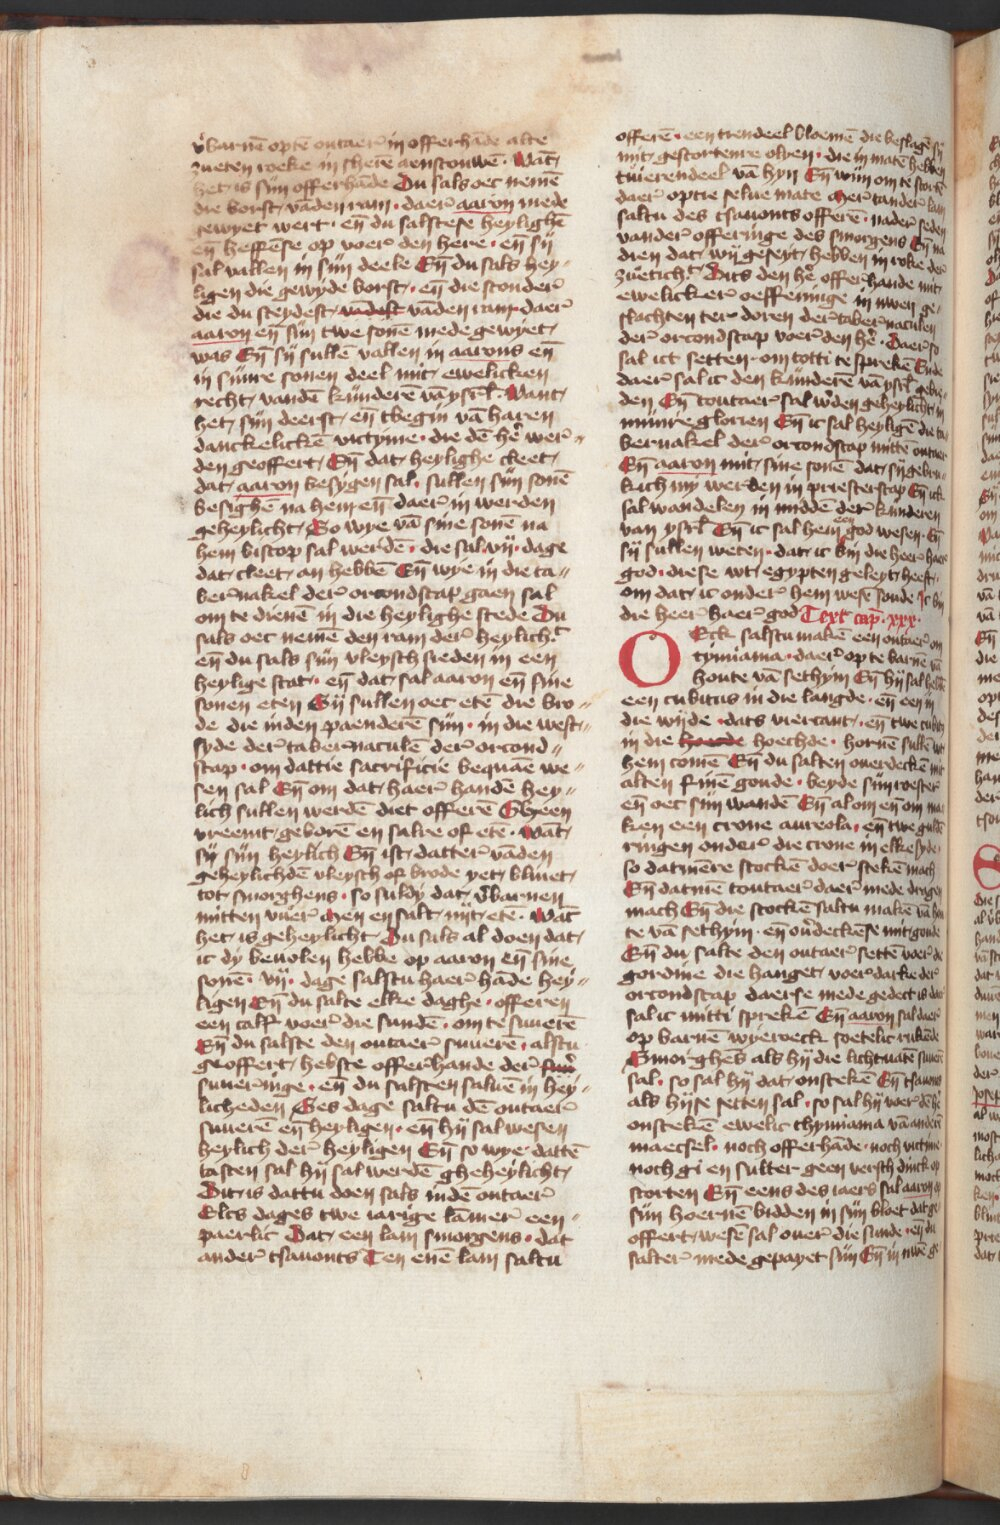 v̉barnē optē outaer̉ in offerhāde alte
zueten roeke in sijere aenscouwē · Wāt
het is sijn offerhāde Du sals oec nemē
die borst vāden ram · daer̉ aaron mede
gewyet wert · eñ du salstese heylighē
eñ heffēse op voer̉ den here · eñ sij
sal vallen in sijn deele Eñ du sals hey〃
ligen die gewyde borst · eñ die sconder̉
die du sceydest vādest vāden ram · daer̉
aaron eñ sijn twe sonē mede gewyet
was Eñ sij sullē vallen in aarons eñ
in sijnre sonen deel mit ewelicken
recht vandē kīnderē vā ysrl̄ · Want
het sijn deerst eñ tbegin vā haren
danckelickē victyme · die dē hē wer〃
den geoffert Eñ dat heylighe cleet
dat aaron besygen sal · sullen sijn sonē
besighē na hem eñ daer̉ in werden
geheylicht So wye vā sine sonē na
hem biscop sal werdē · die sal · vij · dage
dat cleet an hebbē Eñ wye in die ta〃
ber̉nakel der̉ orcondscap gaen sal
om te dienē in die heylighe stede Du
sals oec nemē den ram der̉ heylich̉
eñ du sals sijn vleysch sieden in een
heylige stat · eñ dat sal aaron eñ sine
sonen eten Sij sullen oec etē die bro〃
de die inden paenderē sijn · in die west〃
syde der̉ taber̉naculē der̉ orcond〃
scap · om dattie sacrificie bequāe we〃
sen sal Eñ om dat haer̉ handē hey〃
lich sullen werdē diet offerē Gheen
vreemt geborē en salre of etē · Wāt
sij sijn heylich Eñ ist datter̉ vāden
geheylichdē vleysch of brode yet blivet
tot smorghens · so suldy dat v̉barnen
mitten vuer̉ Men en salt nyt etē · Wāt
het is geheylicht Du suls al doen dat
ic dy bevolen hebbe op aaron eñ sine
sonē · vij · dage salstu haer̉ hāde hey〃
ligen Eñ du salte elke daghe · offeren
een calf voer̉ die sundē · om te suuerē
Eñ du salste den outaer̉ suuerē · alstu
geoffert hebste offer̉hande der̉ suu̅e̅r̉
suuer̉inge · eñ du salsten saluē in hey〃
licheden Ses dage saltu dē outaer̉
suuerē eñ heyligen · eñ hij sal wesen
heylich der̉ heyligen Eñ so wye dattē
tasten sal hij sal werdē gheheylicht
Dit is dattu doen sals indē outaer̉
Elcs dages twe iarige lāmer̉ een〃
paerlic Dat een lam smorgens · dat
ander̉ tsauonts Ten enē lam saltu
offerē · een trendeel bloemē die beslagē sij
mit gestortenre olyen · die in matē hebben
tvierendeel vā hyn Eñ wijn om te stortē
daer̉ op tie selue mate Mer̉ tander̉ lam
saltu des tsauonts offerē · nader̉ seden
vander̉ offeringe des smorgens Eñ na
dien dat wij geseyt hebben in roke der̉
zueticht̉ Dits den hē offer̉hande mit
ewelicker̉ oeffeninge in uwen ge〃
slachten ter doren der̉ taber̉naculen
der̉ orcondscap voer̉ den hē · Daer̉ so
sal ict setten · om totti te sprekē Ende
daer̉ sal ic den kijnderē vā ysrl̄ gebie
den Eñ toutaer̉ sal w̉den geheylicht in
mijnre glorien Eñ ic sal heyligē die ta
bernakel der̉ orcondscap mittē outaer̉
Eñ aaron mit sine sonē dat sij gebru〃
kich my werden in priesterscap Eñ ick
sal wandelen in middē der̉ kijnderen
van ysrl̄ Eñ ic sal hem een god wesen · Eñ
sij sullen weten · dat ic bin die heer̉ haer
god · die se wt egypten geleyt heeft
om dat ic onder̉ hem wesē soude Ic bin
die heer̉ haer̉ god Text cap̄ · xxx ·
Oeck salstu makē een outaer̉ om
tymiama · daer̉ op te barnē vā
houte vā sethym Eñ hij sal hebbē
een cubitus in die langde · eñ een in
die wijde · dats viercant · eñ twe cubitꝯ
in die hoerde hoechde · hornē sullē wt
hem comē Eñ du salten ouerdeckē mit
alten finē goude · beyde sijn roester̉
eñ oec sijn wandē Eñ al om eñ om ma
ken een crone aureola · eñ twe guldē
ringen onder̉ die crone in elke syde
so datmēre stockē doer̉ stekē mach
Eñ datmē toutaer̉ daer̉ mede dragen
mach Eñ die stockē saltu makē vā hou
te vā sethym · eñ ou̅deckēse mit goude
Eñ du salte den outaer̉ settē voer̉ de
gordine die hanget voer̉ darke der̉
orcondscap daer̉se mede gedect is daer̉
sal ic mitti sprekē Eñ aaron sal daer̉
op barnē wyeroeck soetelic rukēde
Smorghes als hij die lichtuate suuert
sal · so sal hij dat onstekē Eñ tsauonts
als hijse setten sal · so sal hij voer̉ dē hē
onstekē ewelic thymiama vā anderē
maecsel · noch offerhāde · noch victime
noch gi en sulter geen versch dinck op
storten Eñ eens des iaers sal aaron op
sijn hoernē bidden in sijn bloet dat ge
offert wesē sal ouer̉ die sunde · eñ du
salter̉ mede gepayet sijn Eñ in uwē ge